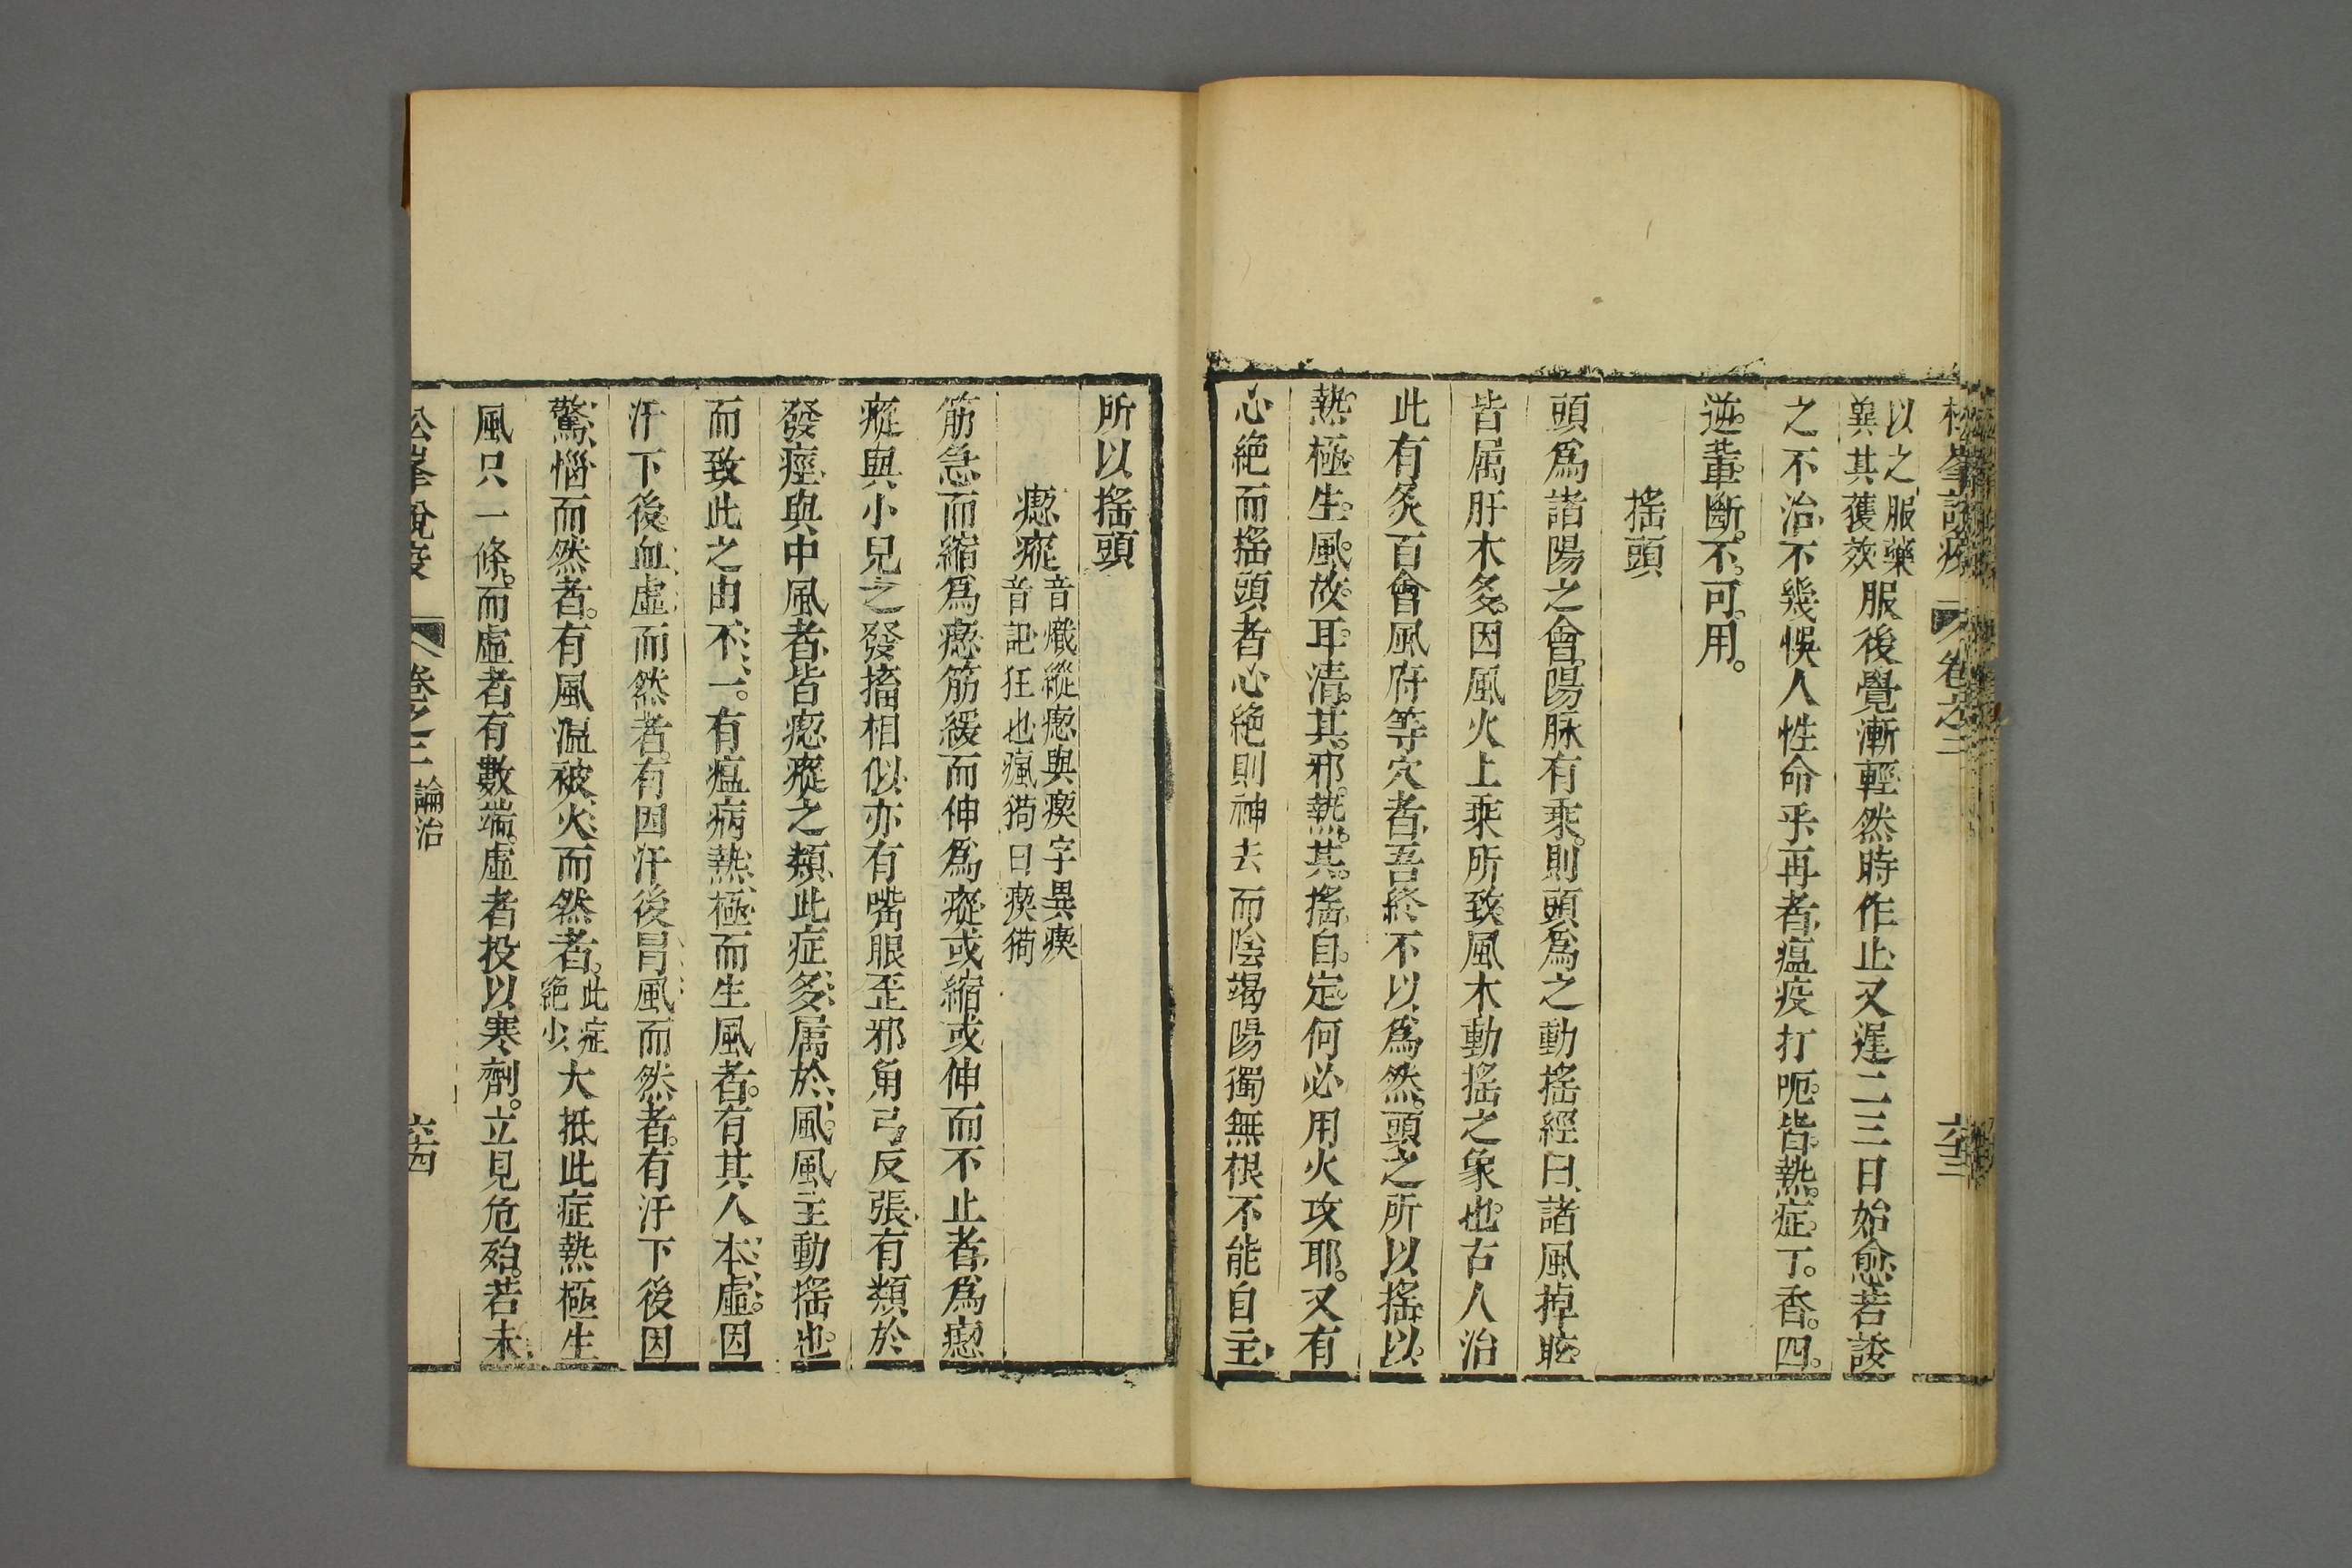 松峯説疫 卷之二 六十三
以之服藥
冀其獲效
服後覺漸輕然時作止又遲二三日始愈若諉
之不治不幾悞人性命乎再者瘟疫打呃皆熱症丁香四
逆輩斷不可用。
搖頭
頭爲諸陽之會陽脉有乘。則頭爲之動搖經曰諸風掉眩
皆属肝木多因風火上乘所致風木動搖之象也古人治
此有灸百會風府等穴者吾終不以爲然頭之所以搖以
熱極生風故耳清其邪熱其搖自定何必用火攻耶。又有
心絶而搖頭者心絶則神去而陰竭陽獨無根不能自主
所以搖頭
瘛瘲
音熾縱瘛與瘈字異瘈
音記狂也瘋狗曰瘈狗
筋急而縮爲瘛筋緩而伸爲瘲或縮或伸而不止者爲瘛
瘲與小兒之發搐相似亦有嘴眼歪邪角弓反張有類於
發痙與中風者皆瘛瘲之類此症多属於風風主動搖也
而致此之由不一。有瘟病熱極而生風者。有其人本虛。因
汗下後血虛而然者。有因汗後冒風而然者。有汗下後因
驚惱而然者。有風温被火而然者。
此症
絶少
大抵此症熱極生
風只一條。而虛者有數端。虛者投以寒劑。立見危殆。若未
松峯說疫 卷之二 論治 六十四